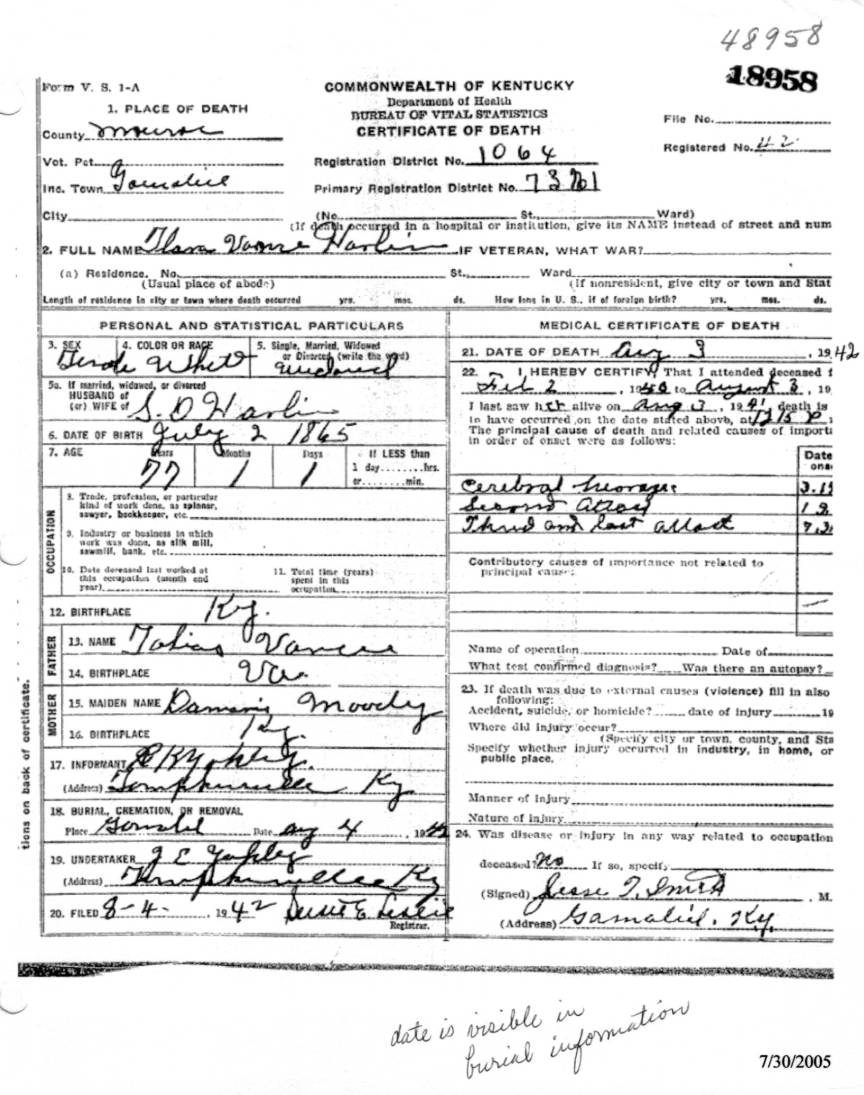 48958
18958
Form V. S. 1-A
COMMONWEALTH OF KENTUCKY
Department of Health
BUREAU OF VITAL STATISTICS
CERTIFICATE OF DEATH
1. PLACE OF DEATH
County Monroe
Vot. Pct.
Inc. Town Gamaliel
City
File No.
Registered No. 42
Registration District No. 1064
Primary Registration District No.
(No. St., Ward)
(If death occurred in a hospital or institution, give its NAME instead of street and num
2. FULL NAME Vance Harlin IF VETERAN, WHAT WAR?
(a) Residence. No. St., Ward
(Usual place of abode) (If nonresident, give city or town and Stat
Length of residence in city or town where death occurred yrs. mos. ds. How long in U. S., if of foreign birth? yrs. mos. ds.
PERSONAL AND STATISTICAL PARTICULARS
3. SEX 4. COLOR OR RACE 5. Single, Married, Widowed
or Divorced (write the word)
White Widowed
5a. If married, widowed, or divorced
HUSBAND of
(or) WIFE of S. D Harlin
6. DATE OF BIRTH July 2 1865
7. AGE Years Months Days If LESS than
77 1 1 1 day........hrs.
or........min.
OCCUPATION
8. Trade, profession, or particular
kind of work done, as spinner,
sawyer, bookkeeper, etc.
9. Industry or business in which
work was done, as silk mill,
sawmill, bank, etc.
10. Date deceased last worked at
this occupation (month and
year)
11. Total time (years)
spent in this
occupation
12. BIRTHPLACE Ky.
FATHER
13. NAME Tobias Vance
14. BIRTHPLACE Va.
MOTHER
15. MAIDEN NAME Damaris Moody
16. BIRTHPLACE Ky.
17. INFORMANT
(Address) Tompkinsville Ky
18. BURIAL, CREMATION, OR REMOVAL
Place Gamaliel Date Aug 4, 1942
19. UNDERTAKER J E Yokley
(Address) Tompkinsville Ky
20. FILED 8-4-, 1942
Registrar.
MEDICAL CERTIFICATE OF DEATH
21. DATE OF DEATH Aug 3, 1942
22. I HEREBY CERTIFY, That I attended deceased f
Feb 2, 1940 to August 3, 19
I last saw her alive on Aug 3, 1941, death is
to have occurred on the date stated above, at 1215 P
The principal cause of death and related causes of importa
in order of onset were as follows:
Date
ons
Cerebral
Second Attack
Third and last attack
Contributory causes of importance not related to
principal cause:
Name of operation Date of
What test confirmed diagnosis? Was there an autopsy?
23. If death was due to external causes (violence) fill in also
following:
Accident, suicide, or homicide? date of injury 19
Where did injury occur?
(Specify city or town, county, and Sta
Specify whether injury occurred in industry, in home, or
public place.
Manner of injury
Nature of injury
24. Was disease or injury in any way related to occupation
deceased? No If so, specify
(Signed) Jesse T. Smith, M.
(Address) Gamaliel. Ky.
tions on back of certificate.
date is visible in
burial information
7/30/2005